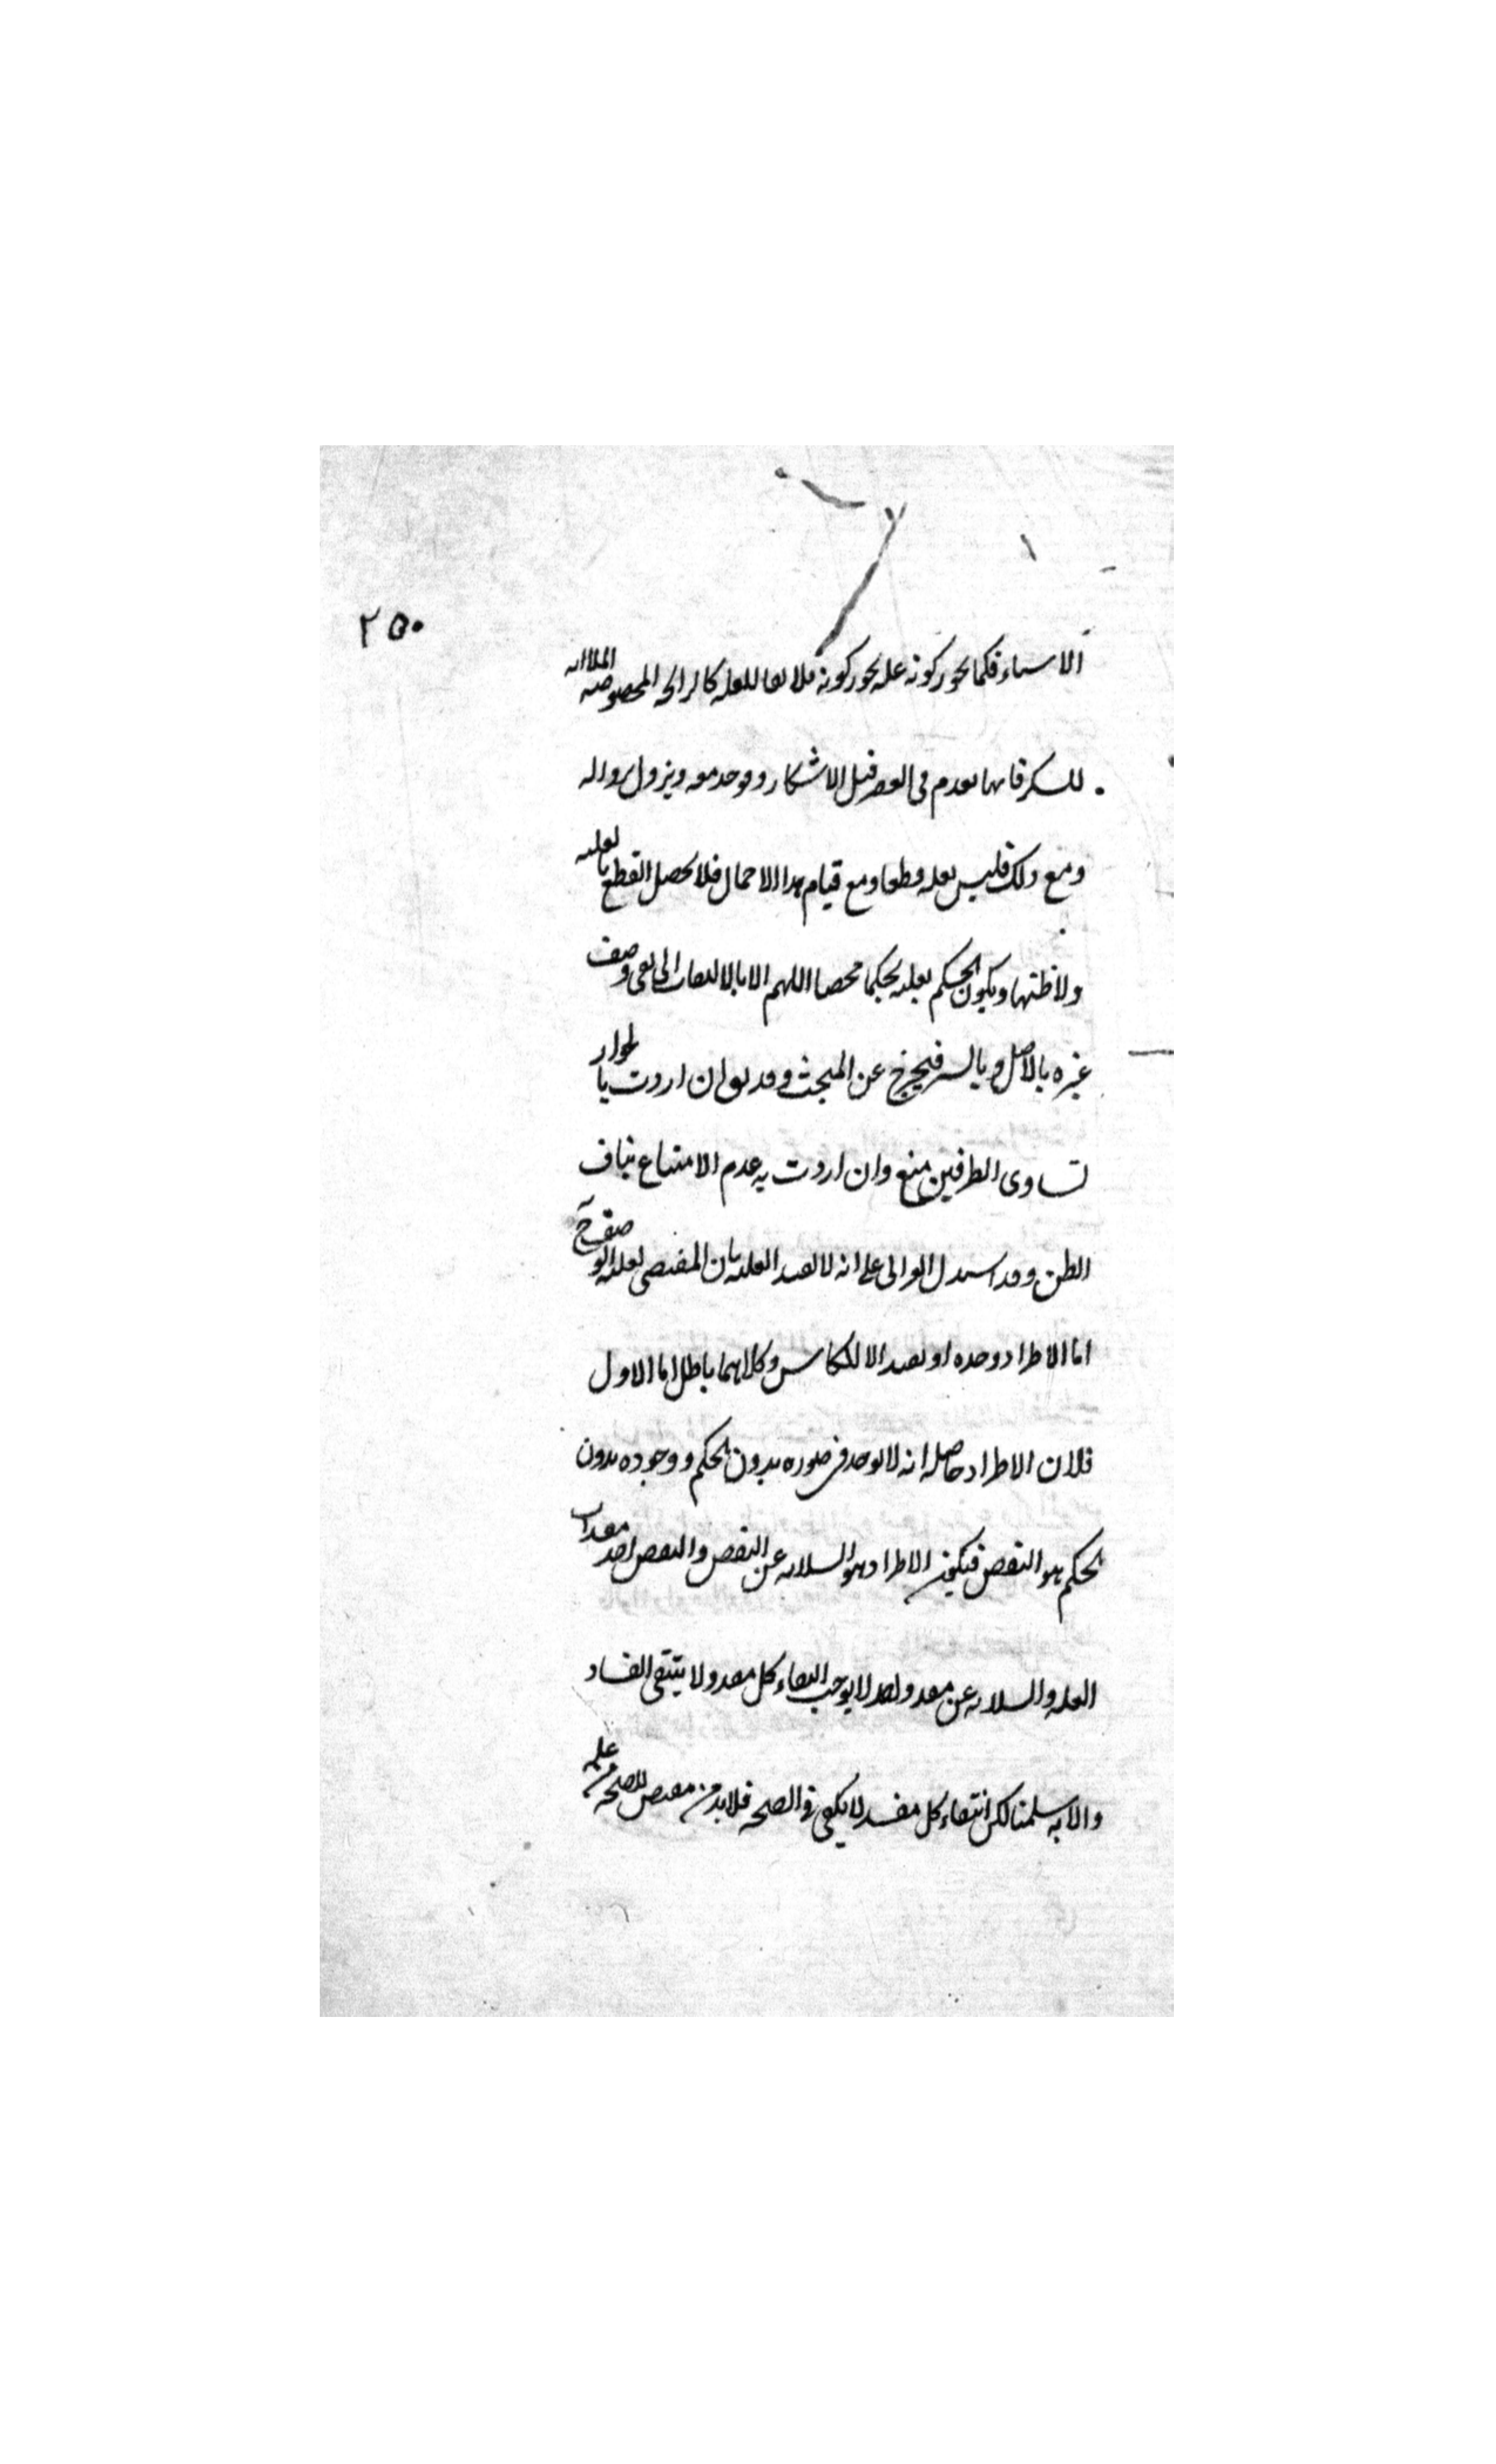 ٢٥٠
الاشياء فكما يجوز كونه علة يجوز كونه ملازما للعلة كالرائحة المخصوصة الملازمة
للسكر فانها تعدم فى العصير قبل الاشكار وتوجد معه ويزول بزواله
ومع ذلك فليس بعلة قطعا ومع قيام هذا الاحتمال فلا يحصل القطع بالعلية
ولا ظنها ويكون الحكم بعليته تحكما محضا اللهم الا بالالتفات الى نفى وصف
غيره بالاصل وبالسبر فيخرج عن المبحث وقد يقال ان اردت بالجواز
تساوى الطرفين منع وان اردت به عدم الامتناع نناف
الظن وقد استدل الغزالى على انه لا يفيد العلية بان المقتضى لعلية الوصف ح
اما الاطراد وحده او بقيد الانعكاس وكلاهما باطل اما الاول
فلان الاطراد حاصله انه لا يوجد فى صورة بدون الحكم ووجوده بدون
الحكم هو النقض فيكون الاطراد هو السلامة عن النقض والنقض احد مفسدات
العلة والسلامة عن مفسد واحد لا يوجب انتفاء كل مفسد ولا ينتفى الفساد
والا به سلمنا لكن انتفاء كل مفسد لا يكفى فى الصحة فلا بد من مقتض للصحة من علة